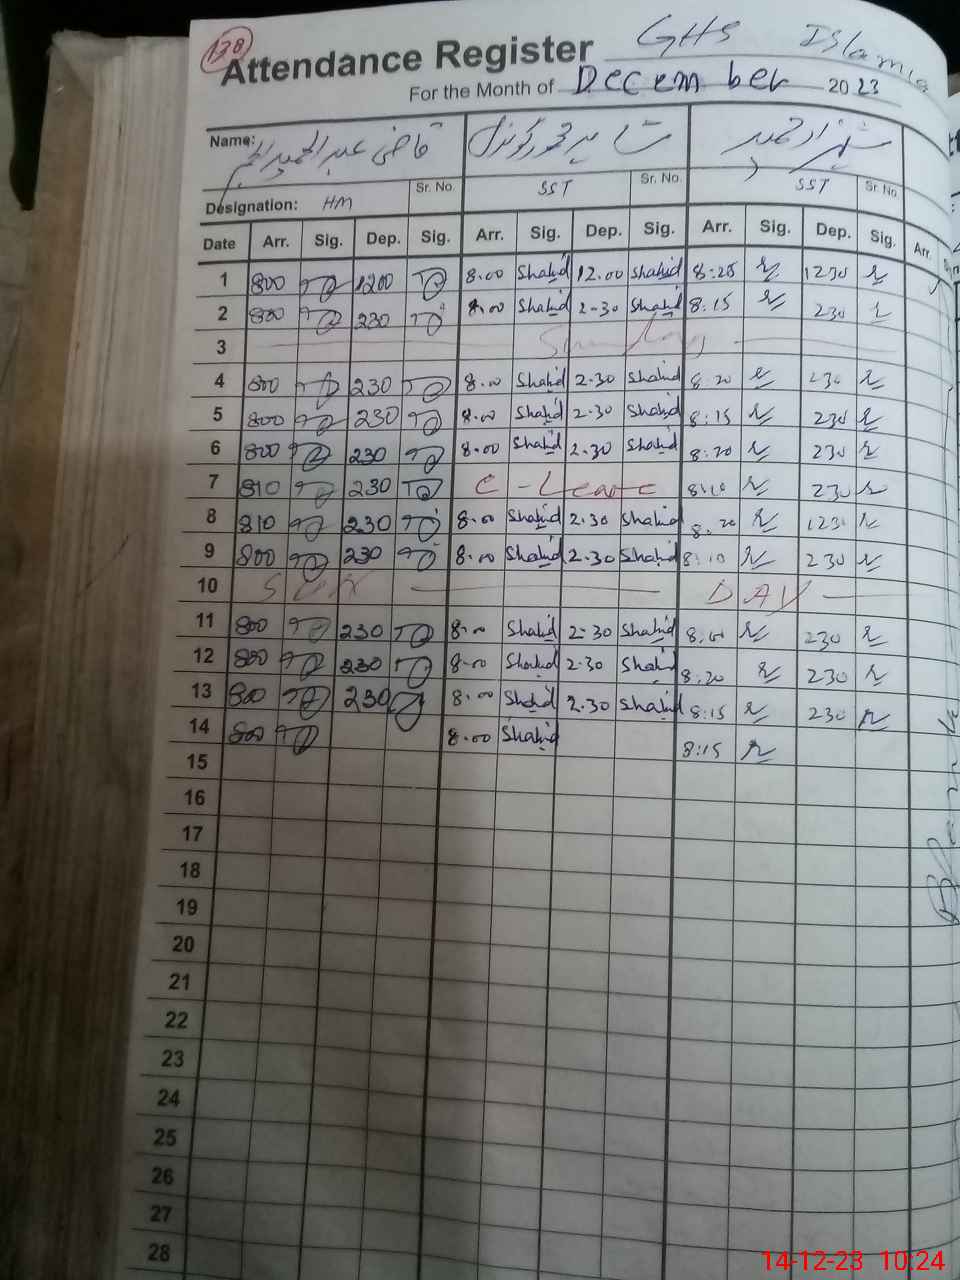 138
Attendance Register GHS Islamia
For the Month of December 2023
Name: قاضی عبد الحمید
Designation: HM Sr. No. SST Sr. No. SST Sr. No.
Date Arr. Sig. Dep. Sig. Arr. Sig. Dep. Sig. Arr. Sig. Dep. Sig. Arr.
1 800 1200 8.00 Shahid 12.00 Shahid 8:25 1230
2 800 230 8.00 Shahid 2-30 Shahid 8:15 230
3 Sunday
4 800 230 8.00 Shahid 2.30 Shahid 8:20 230
5 800 230 8.00 Shahid 2.30 Shahid 8:15 230
6 800 230 8.00 Shahid 2.30 Shahid 8:20 230
7 810 230 C-Leave 8:10 230
8 810 230 8.00 Shahid 2.30 Shahid 8:20 1230
9 800 230 8.00 Shahid 2.30 Shahid 8:10 230
10 SUN DAY
11 800 230 8.00 Shahid 2-30 Shahid 230
12 800 230 8.00 Shahid 2.30 Shahid 8:20 230
13 800 230 8.00 Shahid 2.30 Shahid 8:15 230
14 800 8.00 Shahid 8:15
15
16
17
18
19
20
21
22
23
24
25
26
27
28
14-12-23 10:24